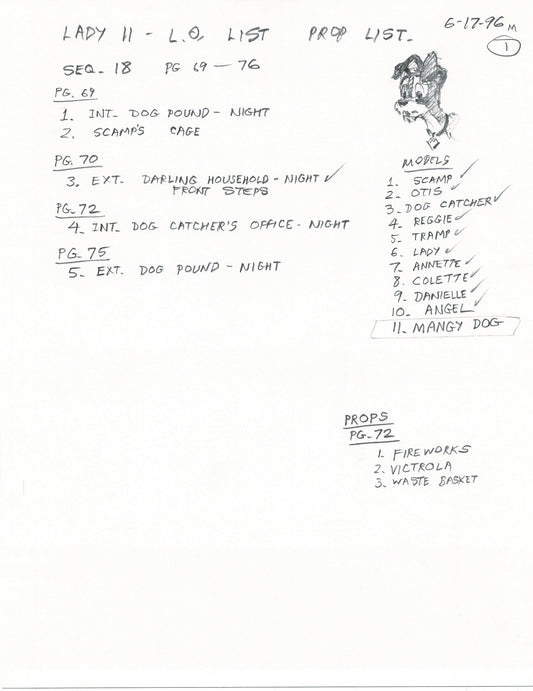 LADY II - L.O. LIST PROP LIST.
6-17-96 M
1
SEQ. 18 PG 69 — 76
PG. 69
1. INT. DOG POUND - NIGHT
2. SCAMP'S CAGE
PG. 70
3. EXT. DARLING HOUSEHOLD - NIGHT ✓
FRONT STEPS
PG. 72
4. INT. DOG CATCHER'S OFFICE - NIGHT
PG. 75
5. EXT. DOG POUND - NIGHT
MODELS
1. SCAMP ✓
2. OTIS ✓
3. DOG CATCHER ✓
4. REGGIE ✓
5. TRAMP ✓
6. LADY ✓
7. ANNETTE ✓
8. COLETTE ✓
9. DANIELLE ✓
10. ANGEL ✓
11. MANGY DOG
PROPS
PG. 72
1. FIREWORKS
2. VICTROLA
3. WASTE BASKET